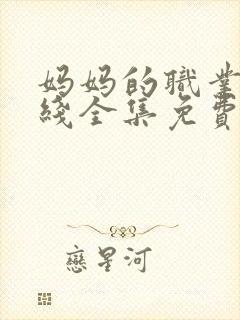 妈妈的職業
綫全集免費
戀星河